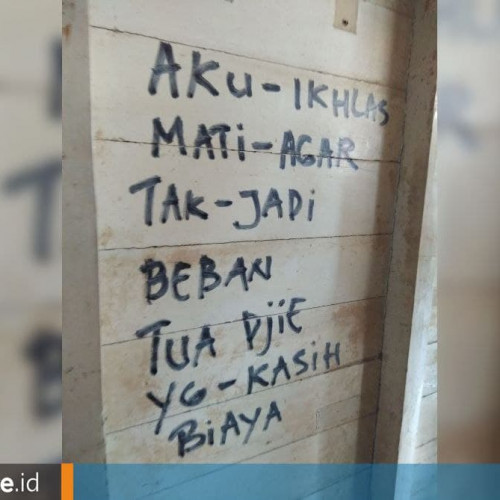 AKU-IKHLAS
MATi-AGAR
TAK-JADi
BEBAN
TUA PJiE
YG-KASiH
BiAYA
e.id